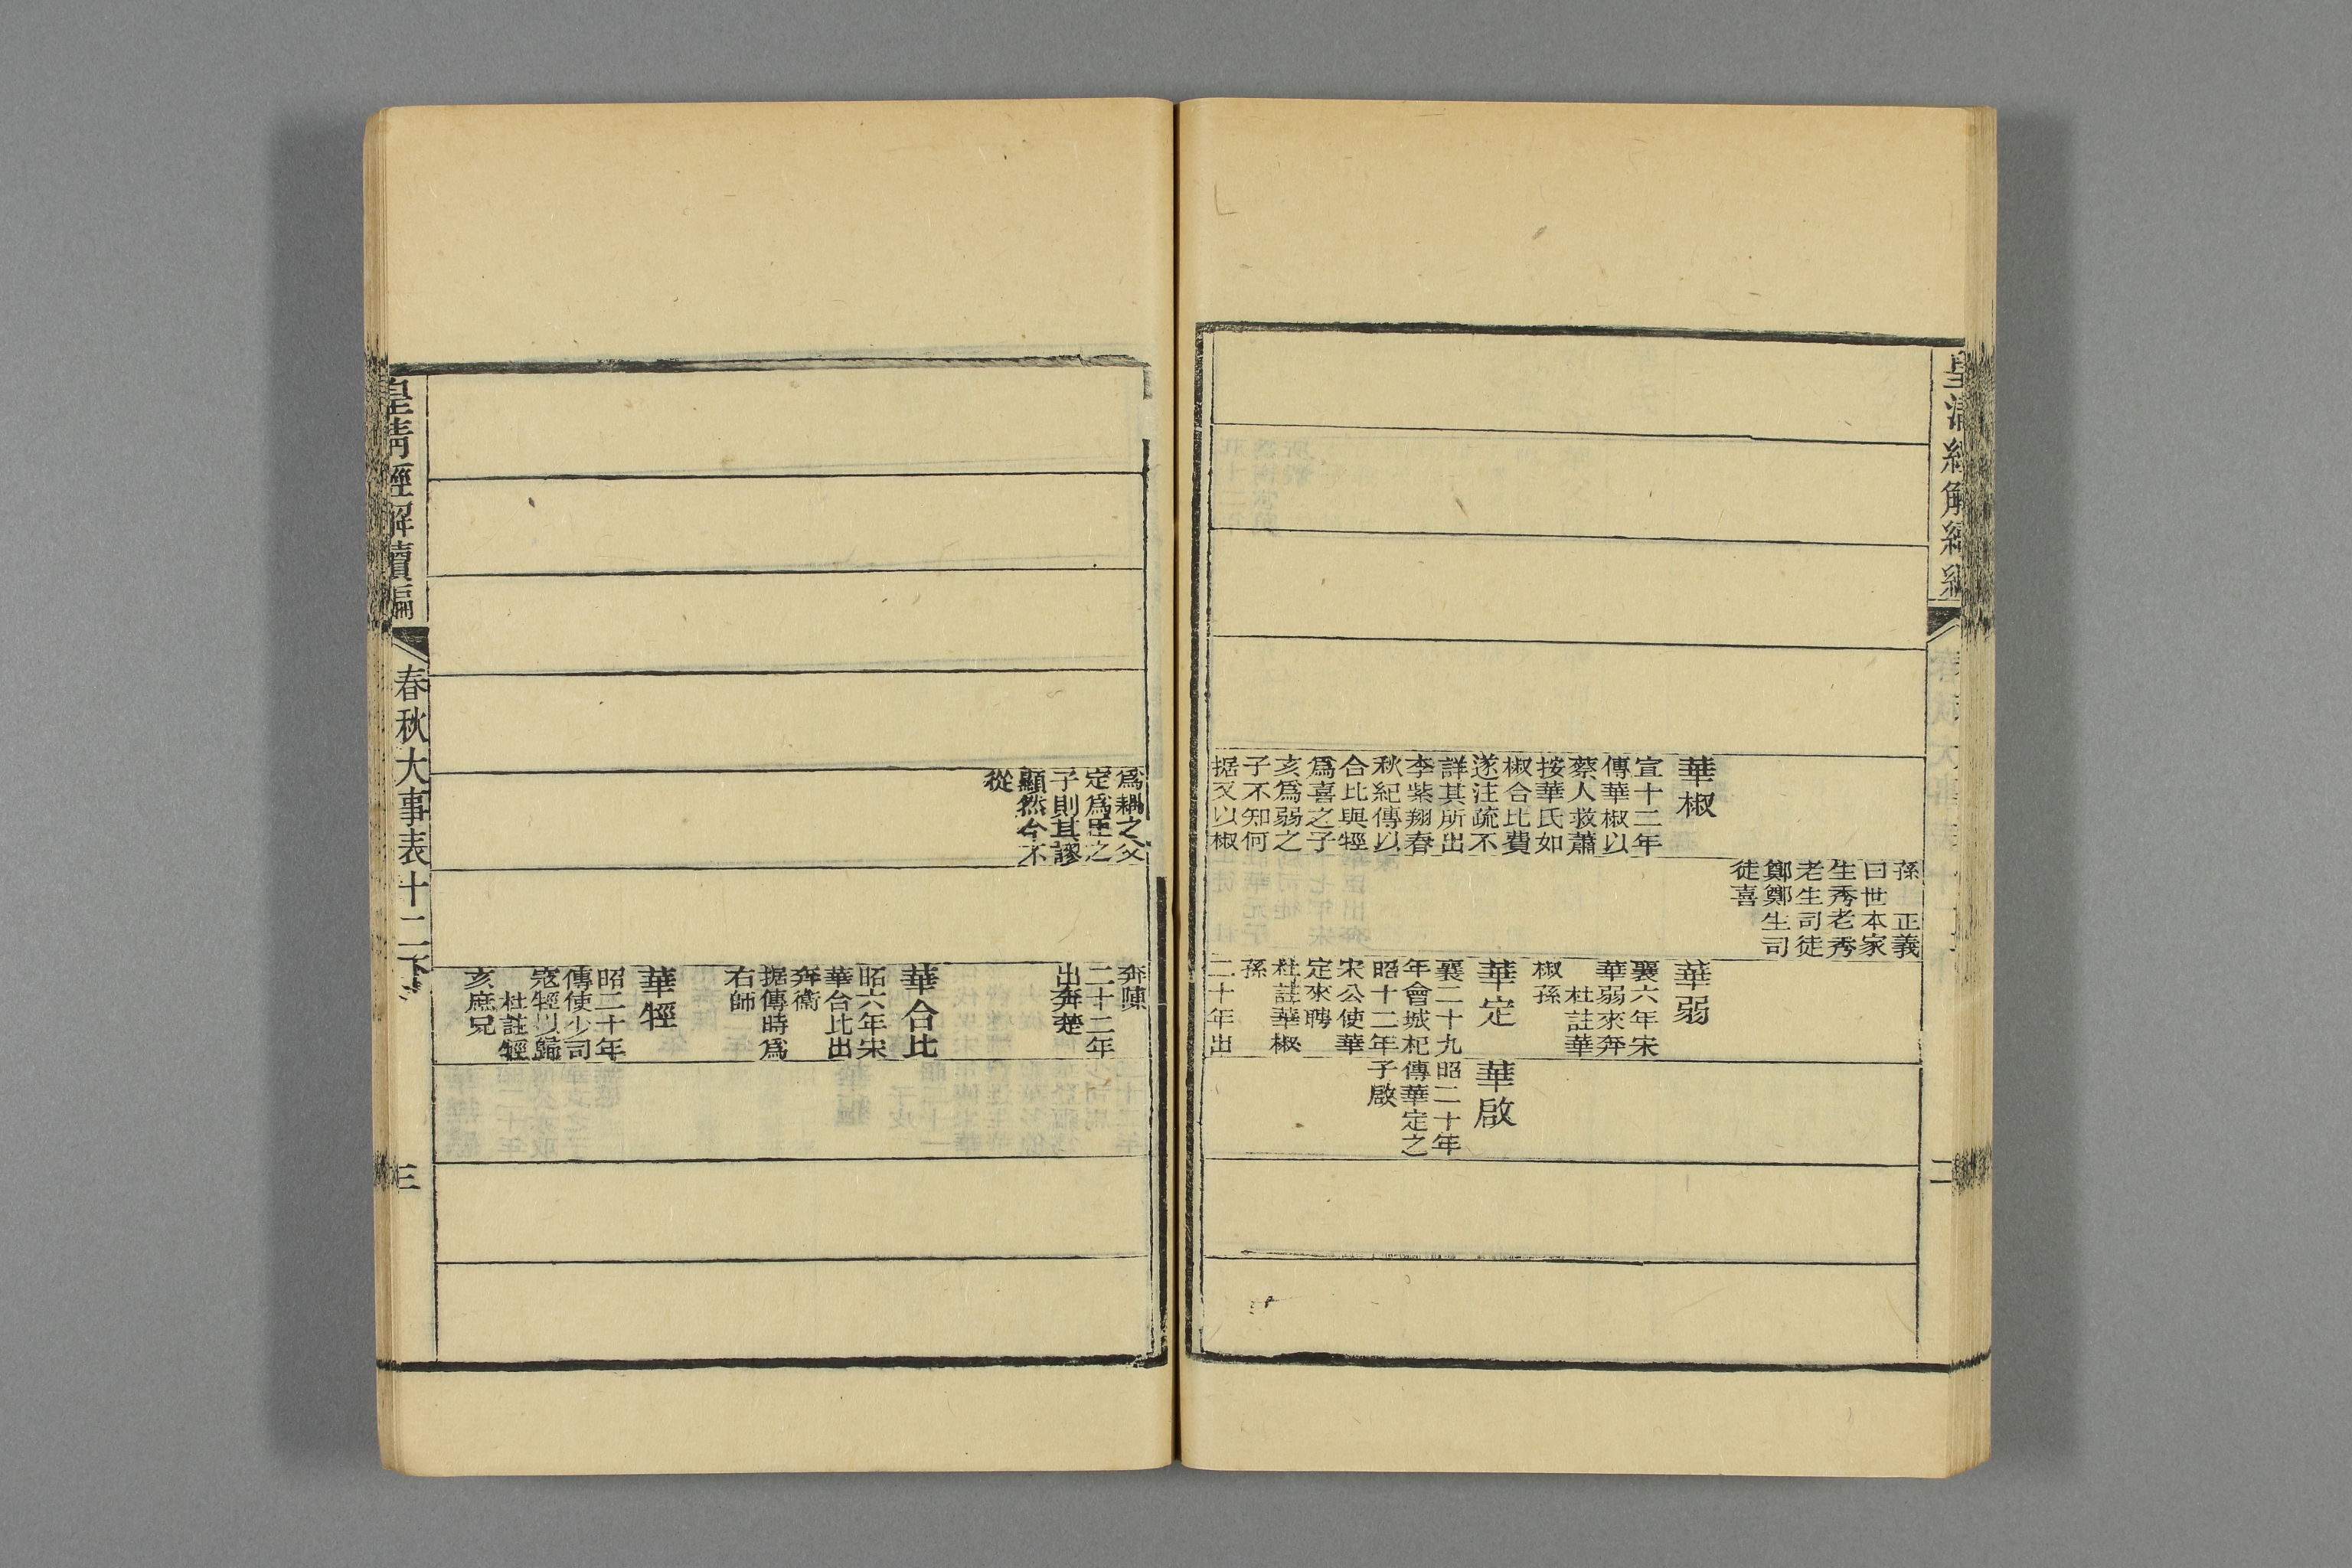 皇清經解續編
春秋大事表十二下
二
華椒
宣十二年
傳華椒以
蔡人救蕭
按華氏如
椒合比費
遂注疏不
詳其所出
李紫翔春
秋紀傳以
合比與牼
爲喜之子
亥爲弱之
子不知何
据又以椒
孫　正義
曰世本家
生秀老秀
老生司徒
鄭鄭生司
徒喜
華弱
襄六年宋
華弱來奔
杜註華
椒孫
華定
襄二十九
年會城杞
昭十二年
宋公使華
定來聘
杜註華椒
孫
二十年出
華啟
昭二十年
傳華定之
子啟
爲耦之父
定爲臣之
子則其謬
顯然今不
從
奔陳
二十二年
出奔楚
華合比
昭六年宋
華合比出
奔衞
据傳時爲
右師
華牼
昭二十年
傳使少司
寇牼以歸
杜註牼
亥庶兄
皇清經解續編
春秋大事表十二下
三